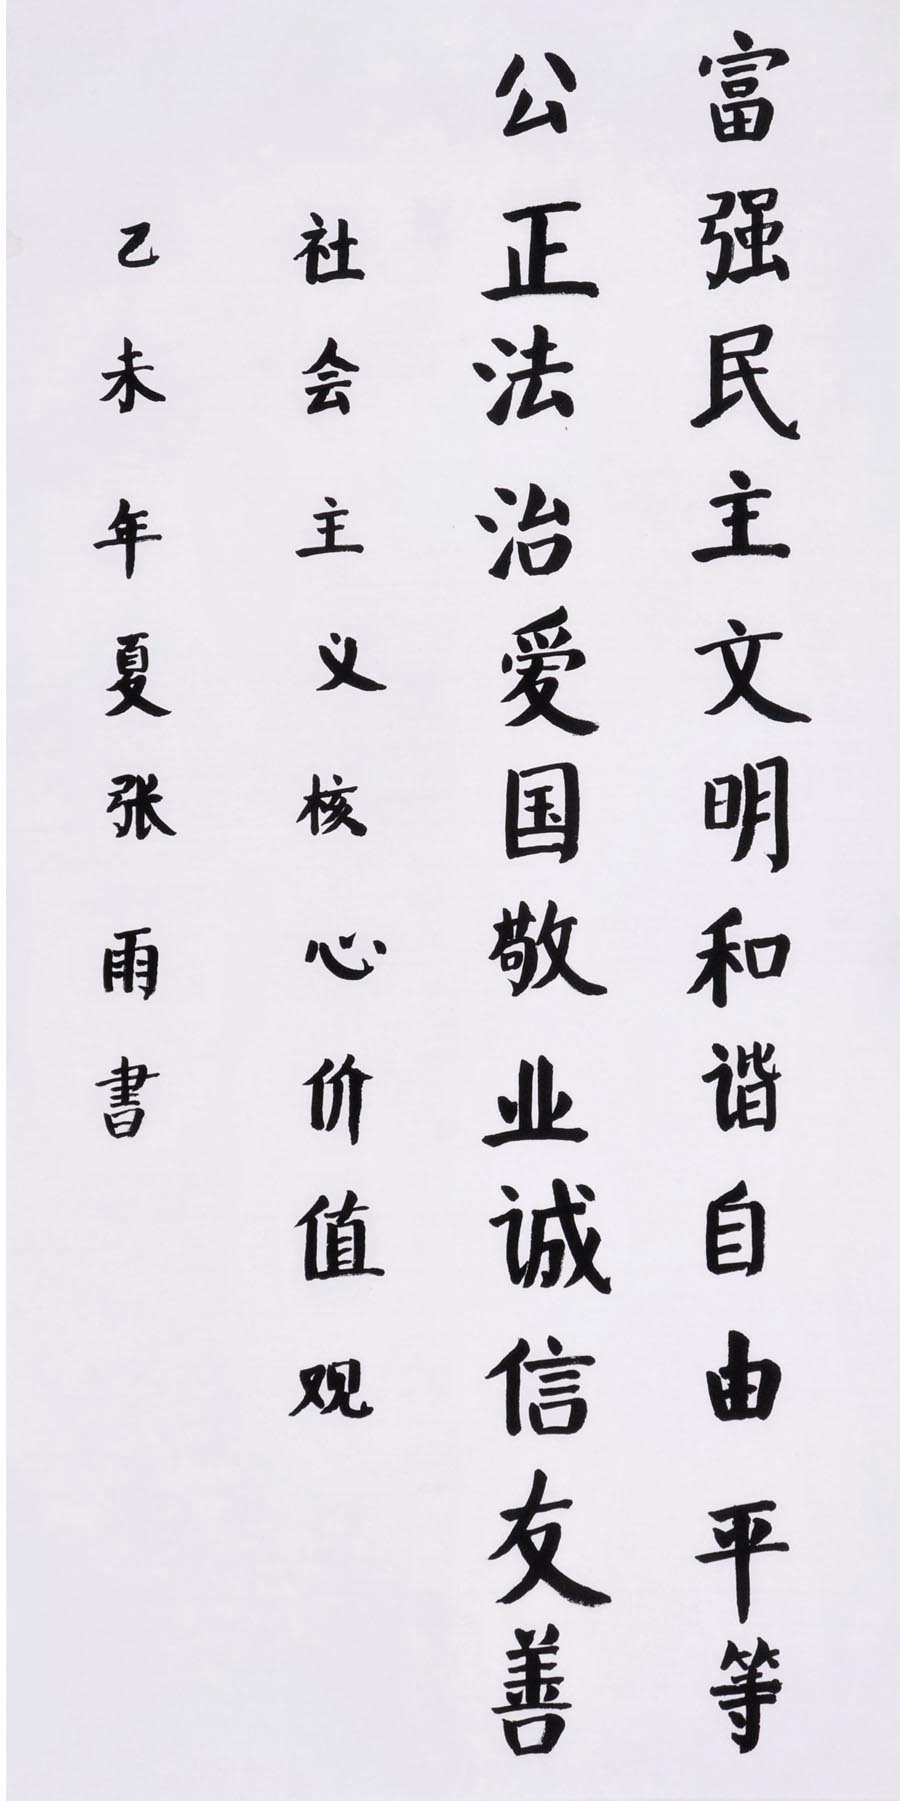 富强民主文明和谐自由平等
公正法治爱国敬业诚信友善
社会主义核心价值观
乙未年夏张雨書